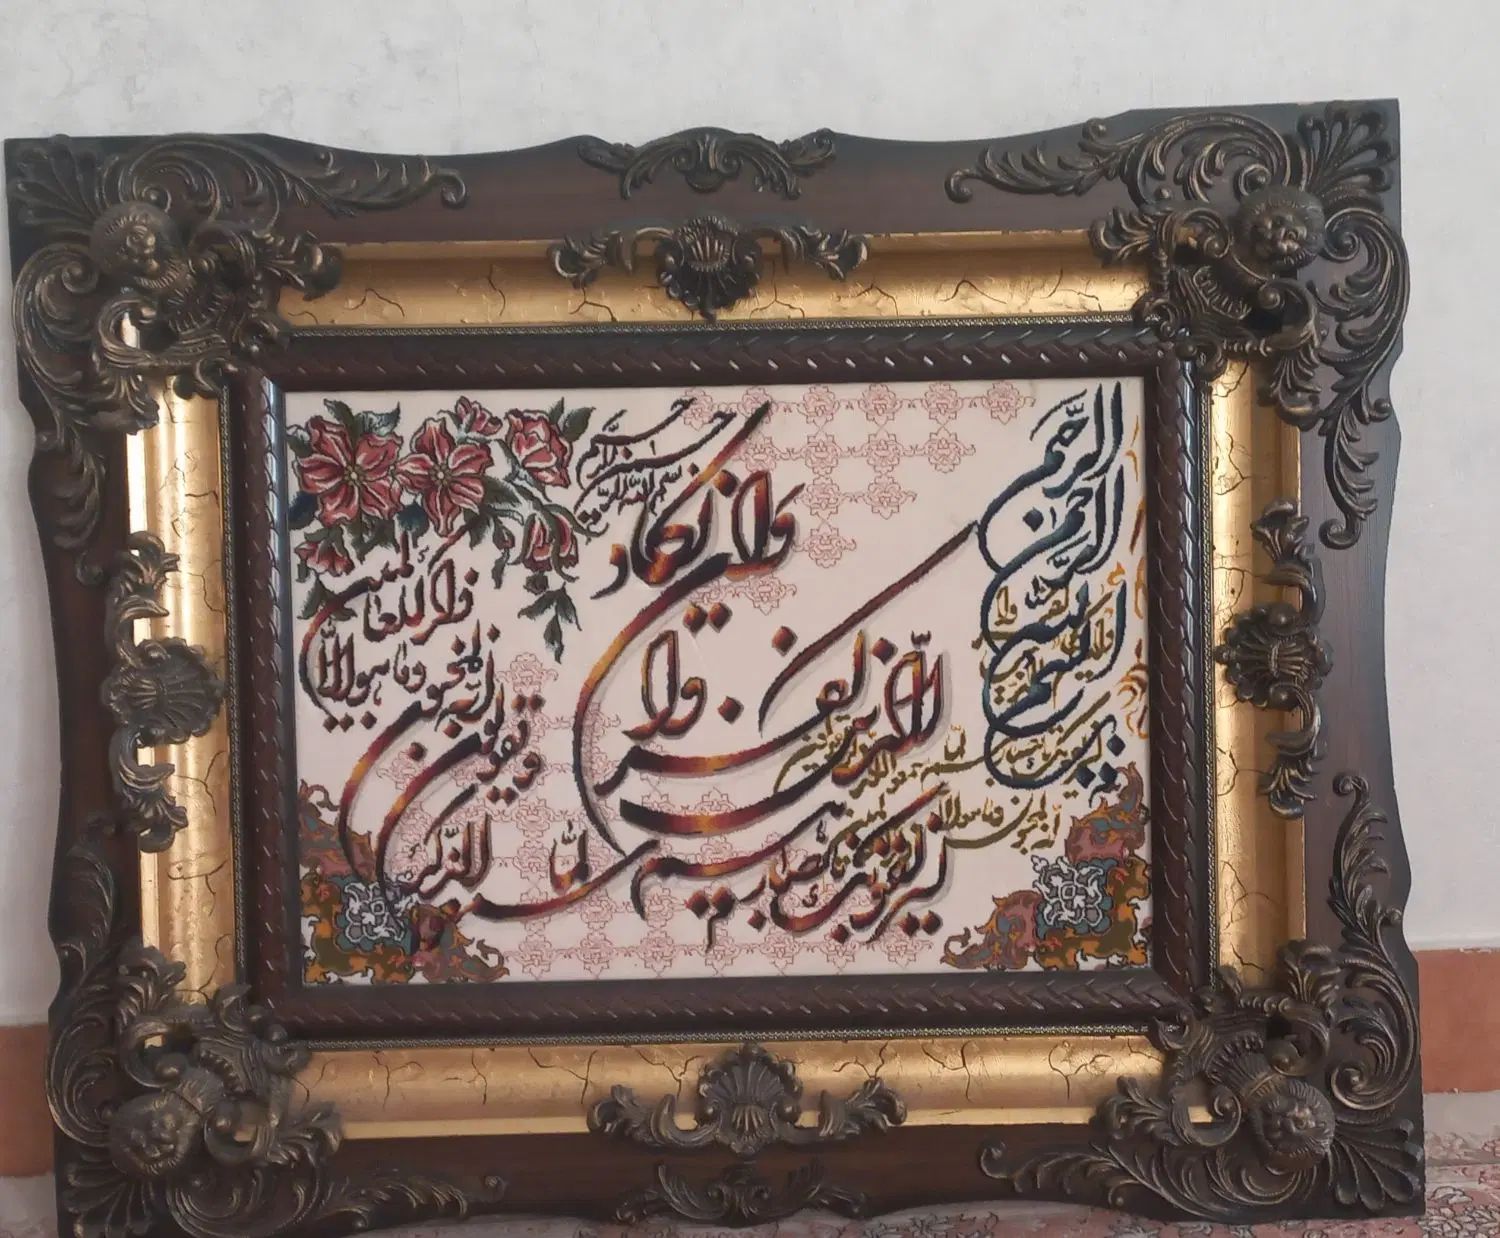 بسم الله الرحمن الرحیم
بسم الله الرحمن الرحیم
وان یکاد
الذین کفروا
لیزلقونک بابصارهم
لما سمعوا الذکر
و یقولون
انه لمجنون
وما هو الا
ذکر للعالمین